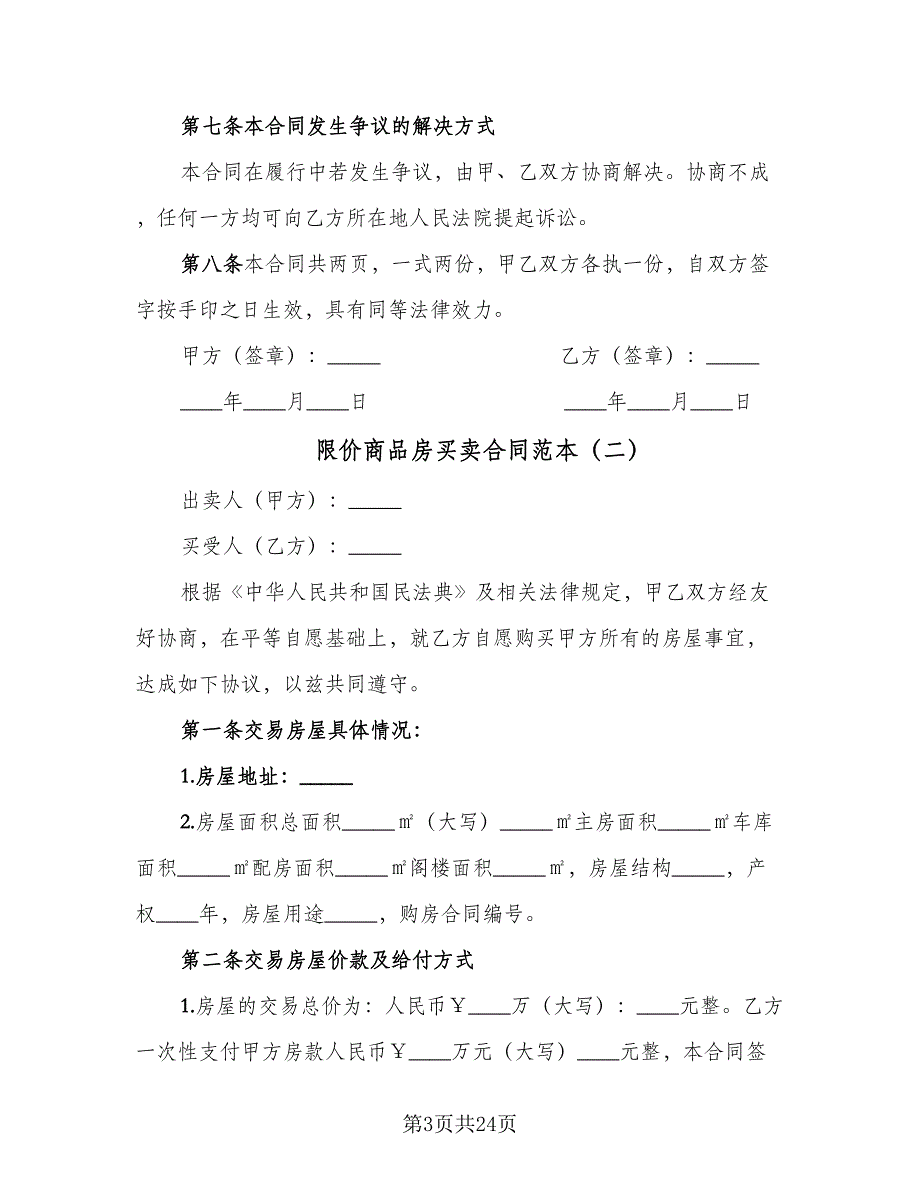 第七条本合同发生争议的解决方式
本合同在履行中若发生争议，由甲、乙双方协商解决。协商不成
，任何一方均可向乙方所在地人民法院提起诉讼。
第八条本合同共两页，一式两份，甲乙双方各执一份，自双方签
字按手印之日生效，具有同等法律效力。
甲方（签章）：_____ 乙方（签章）：_____
____年____月____日 ____年____月____日
限价商品房买卖合同范本（二）
出卖人（甲方）：_____
买受人（乙方）：_____
根据《中华人民共和国民法典》及相关法律规定，甲乙双方经友
好协商，在平等自愿基础上，就乙方自愿购买甲方所有的房屋事宜，
达成如下协议，以兹共同遵守。
第一条交易房屋具体情况：
1.房屋地址：_____
2.房屋面积总面积_____㎡（大写）_____㎡主房面积_____㎡车库
面积_____㎡配房面积_____㎡阁楼面积_____㎡，房屋结构_____，产
权____年，房屋用途_____，购房合同编号。
第二条交易房屋价款及给付方式
1.房屋的交易总价为：人民币￥____万（大写）：____元整。乙方
一次性支付甲方房款人民币￥____万元（大写）____元整，本合同签
第3页共24页